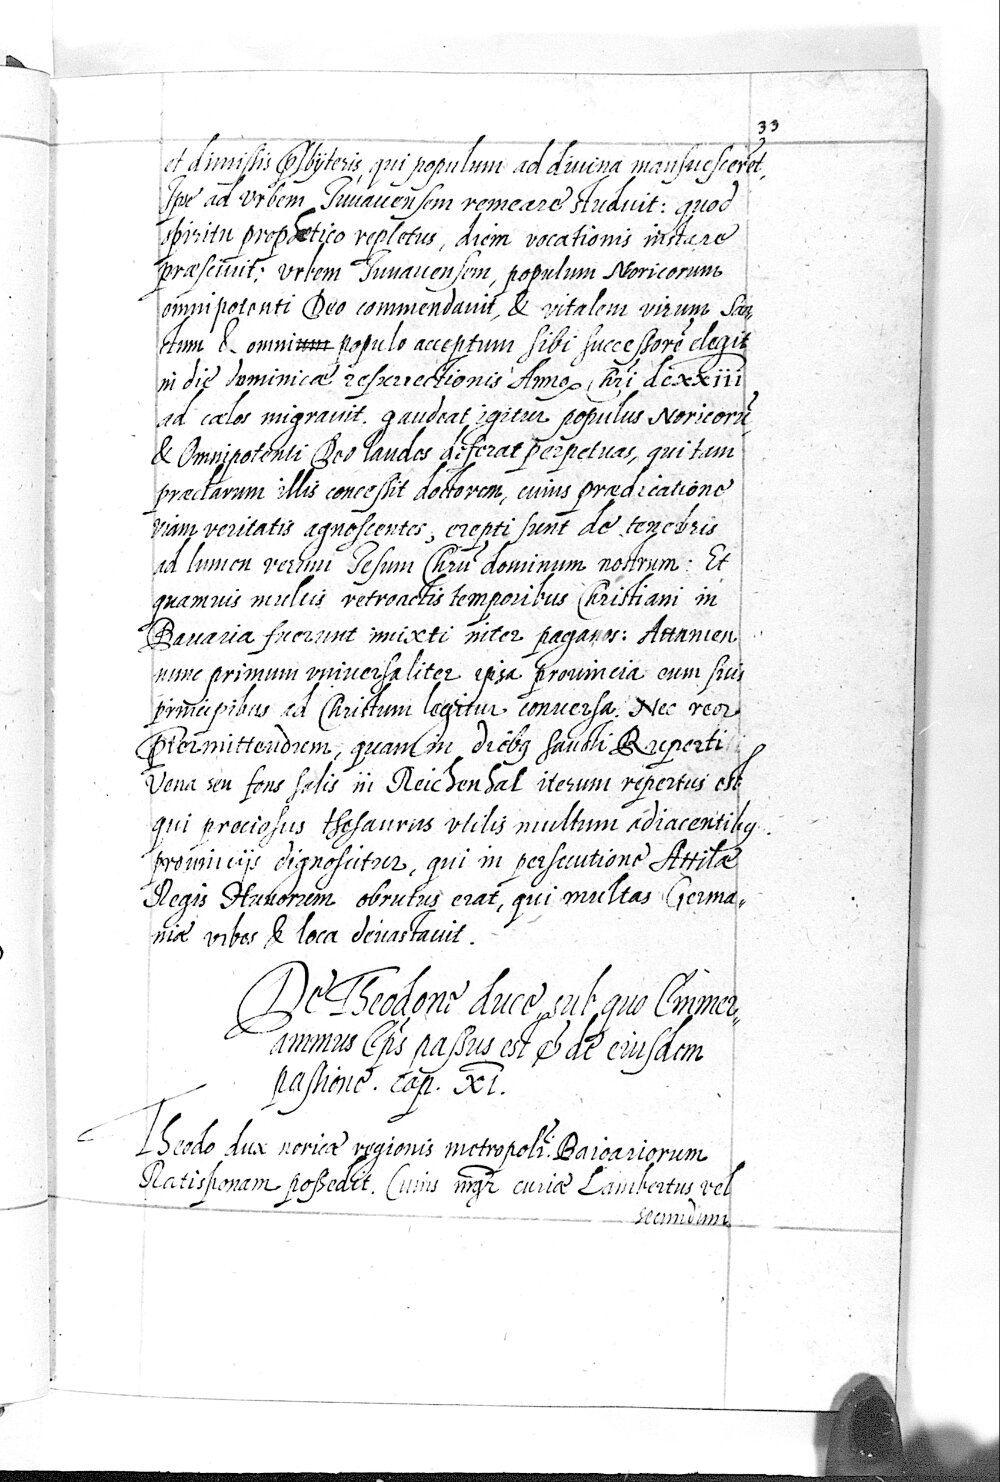 33
et dimissis Psbÿteris, qui populum ad divina mansuesceret,
Ipse ad vrbem Iuuauensem remeare studuit: quod
spiritu prophetico repletus, diem vocationis instare
præsciuit: vrbem Iuuauensem, populum Noricorum
omnipotenti Deo commendauit, & vitalem virum San,
ctum & omnium populo acceptum sibi successorē elegit
in die dominicæ resurrectionis Anno Chri dcxxiii
ad cælos migrauit. gaudeat igitur populus Noricorū,
& Omnipotenti Deo laudes deferat perpetuas, qui tam
præclarum illis concessit doctorem, cuius prædicatione
viam veritatis agnoscentes, erepti sunt de tenebris
ad lumen verum Iesum Chrū dominum nostrum: Et
quamuis multis retroactis temporibus Christiani in
Bauaria fuerunt mixti inter paganos: Attamen
nunc primum vniuersaliter ipsa prouincia cum suis
principibus ad Christum legitur conuersa. Nec reor
ptermittendum, quam in diebq sancti Ruperti
Vena seu fons salis in Reichenhal iterum repertus est
qui preciosus thesaurus vtilis multum adiacentibq
prouincijs dignoscitur, qui in persecutione Attilæ
Regis Hunorum obrutus erat, qui multas Germa,
niæ vrbes & loca deuastauit.
De Theodone duce, sub quo Emmer,
ammus Eps passus est & de eiusdem
passione. cap. XI.
Theodo dux noricæ regionis metropolī Baioariorum
Ratisponam possedit. Cuius mgr curiæ Lambertus vel
secundum